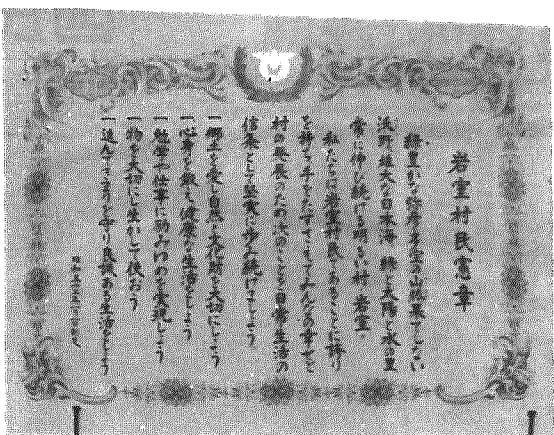 岩室村民憲章
緑豊かな弥彦多宝の山脈果てしない
沃野雄大な日本海 緑と太陽と水の里
常に伸び続ける明るい村 岩室
私たちは岩室村民であることに誇り
を持ち手をたずさえてみんなの幸せと
村の発展のため次のことを日常生活の
信条として堅実に歩み続けましょう
一郷土を愛し自然と文化財を大切にしよう
一心身を鍛え健康な生活をしよう
一勤労や仕事に励みのを実現しよう
一物を大切にし生かして使おう
一進んできまりを守り良識ある生活をしよう
昭和五十